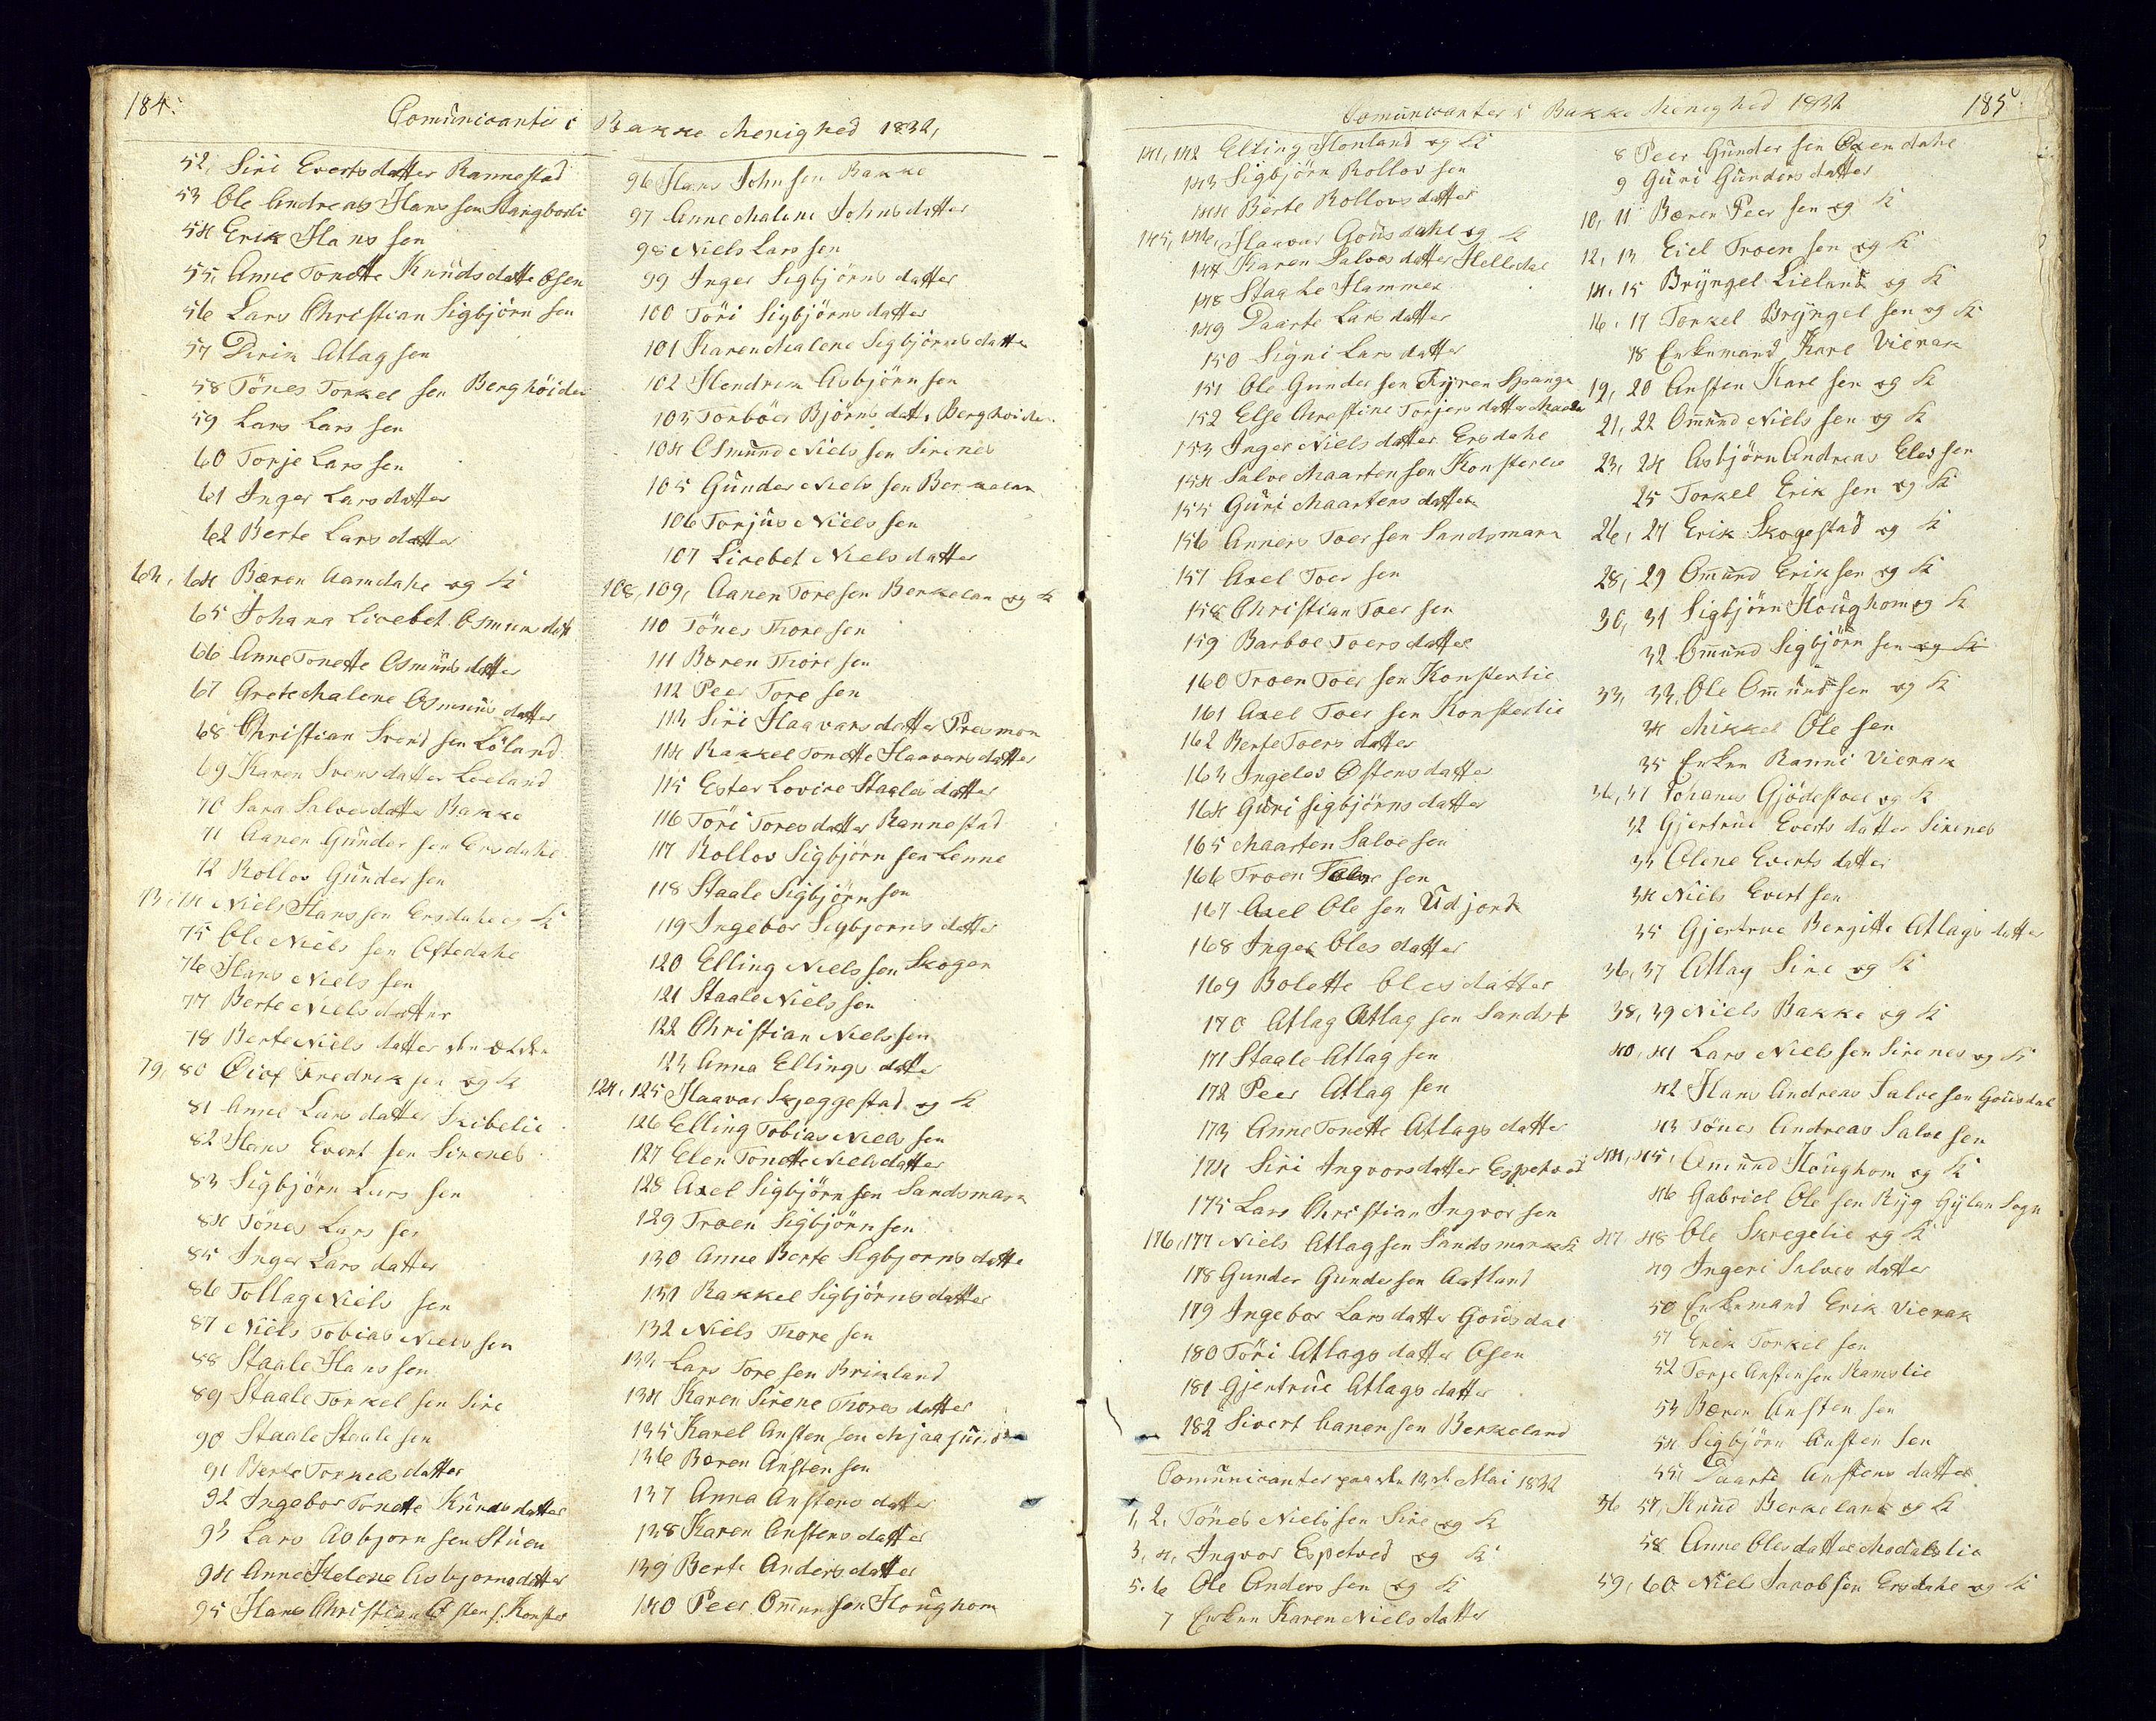 184.
Comunicanter i Bakke Menighed 1832,
52, Siri Evertsdatter Rannestad
53 Ole Andreas Hans sen Stangborli
54 Erik Hans sen
55, Anne Tonette Knudsdatte Osen
56 Lars Christian Sigbjörn sen
57 Dirik Atlag sen
58 Tönes Torkel sen Berghöiden
59 Lars Lars sen
60 Torje Lars sen
61 Inger Larsdatter
62 Berte Lars datter
63, 64 Bæren Aamdahe og K
65 Johana Lisebet Osmunsdatt
66 Anne Tonette Osmunsdatter
67 Grete Malene Osmuns datter
68 Christian Svend sen Löland
69 Karen Svensdatter Loeland
70 Sara Salvesdatter Bakke
71 Aanen Gunder sen Ersdahe
72 Rollov Gunder sen
73, 74 Niels Hanssen Ersdahe og K
75 Ole Niels sen Oftedahe
76 Hans Niels sen
77 Berte Nielsdatter
78 Berte Niels datter den ældste
79, 80 Fredrik sen og K
81 Anne Lars datter Skibelie
82 Hans Evert sen Sirenes
83 Sigbjörn Lars sen
84 Tönes Lars sen
85 Inger Lars datter
86 Tollag Niels sen
87 Niels Tobias Niels sen
88 Staale Hans sen
89 Staale Torkel sen Sire
90 Staale Staale sen
91 Berte Torkels datter
92 Ingebor Tonette Knuds datter
93 Lars Asbjorn sen Stuen
94 Anne Helene Asbjornsdatter
95 Hans Christian Østen s. Konster
96 Hans John sen Bakke
97 Anne Malene Johnsdatter
98 Niels Lars sen
99 Inger Sigbjörns datter
100 Töri Sigbjörnsdatter
101 Karen Malene Sigbjörnsdatte
102 Hendrik Asbjörn sen
103 Torboer Björns datt. Berghoiden
104 Osmund Niels sen Sirenes
105 Gunder Niels sen Berkelan
106 Torjus Niels sen
107 Lisebet Niels datter
108, 109, Aanen Tore sen Berkelan og K
110 Tönes Thore sen
111 Bæren Thore sen
112 Peer Tore sen
113 Siri Haavarsdatter Presmon
114 Rakkel Tonette Haavarsdatter
115 Ester Lovise Staales datter
116 Töri Tores datter Rannestad
117 Rollov Sigbjörn sen Lenne
118 Staale Sigbjörn sen
119 Ingebor Sigbjorns datter
120 Elling Niels sen Skogen
121 Staale Niels sen
122 Christian Niels sen
123 Anna Ellings datter
124, 125 Haavar Skjeggestad og K
126 Elling Tobias Niels sen
127 Elen Tonette Nielsdatter
128 Axel Sigbjörn sen Sandsmark
129 Troen Sigbjörn sen
130 Anne Berte Sigbjorns datte
131 Rakkel Sigbjörnsdatter
132 Niels Thore sen
133 Lars Tore sen Brikland
134 Karen Sirene Thores datter
135 Karel Ansten sen
136 Bæren Ansten sen
137 Anna Anstens datter
138 Karen Anstens datter
139 Berte Anders datter
140 Peer Ommun sen Houghom
Comunicanter i Bakke Menighed 1832
185
141, 142 Elling Honland og K
143 Sigbjörn Rollov sen
144 Berte Rollovs datter
145, 146, Haavar Gousdahe og K
147 Karen Salves datter Helledal
148 Staale Hammer
149 Daarte Lars datter
150 Signi Lars datter
151 Ole Gunder sen Spange
152 Else Chrestine Torjers datter
153 Inger Niels datter Ersdahe
154 Salve Maarten sen Konsterlie
155 Guri Maartens datter
156 Anners Toer sen Sandsmark
157 Axel Toer sen
158 Christian Toer sen
159 Barboe Toers datter
160 Troen Toer sen Konsterlie
161 Axel Toer sen Konsterlie
162 Berte Toers datter
163 Ingelev Østensdatter
164 Guri Sigbjörns datter
165 Maarten Salve sen
166 Troen sen
167 Axel Ole sen Udjord
168 Inger Oles datter
169 Bolette Oles datter
170 Atlag Atlag sen Sandst
171 Staale Atlag sen
172 Peer Atlag sen
173 Anne Tonette Atlags datter
174 Siri Ingvorsdatter Espetved
175 Lars Christian Ingvor sen
176, 177 Niels Atlag sen Sandsmark K
178 Gunder Gunder sen Aatland
179 Ingebor Lars datter Gousdal
180 Töri Atlags datter Osen
181 Gjertrue Atlags datter
182 Sivert Aanen sen Berkeland
Comunicanter paa den 13de Mai 1832
1, 2. Tönes Niels sen Sire og K
3, 4, Ingvor Espetved og K
5. 6 Ole Anders sen og K
7 Enken Karen Niels datter
8 Peer Gunder sen Øxendahe
9 Guri Gunders datter
10, 11 Bæren Peer sen og K
12, 13 Eiel Troen sen og K
14. 15 Bryngel Lieland og K
16. 17 Torkel Bryngel sen og K
18 Enkemand Karl Vierak
19, 20 Ansten Karl sen og K
21, 22 Ommund Niels sen og K
23, 24 Asbjörn Andreas Eles sen
25 Torkel Erik sen og K
26, 27 Erik Skogestad og K
28, 29 Ommund Erik sen og K
30, 31 Sigbjörn Houghom og K
32 Ommund Sigbjörn sen og K
33, 33, Ole Ommund sen og K
34 Mikkel Ole sen
35 Enken Ranni Vierak
36, 37 Johanes Gjödestoel og K
32 Gjertrue Everts datter Sirenes
33 Olene Everts datter
34 Niels Evert sen
35 Gjertrue Bergitte Atlags datter
36, 37 Atlag Sire og K
38, 39 Niels Bakke og K
40, 41 Lars Niels sen Sirenes og K
42 Hans Andreas Salve sen Gousdal
43 Tönes Andreas Salve sen
44, 45, Ommund Houghom og K
46 Gabriel Ole sen Ryg Gylan Sogn
47, 48 Ole Skregelie og K
49 Ingeri Salves datter
50 Enkemand Erik Vierak
51 Erik Torkel sen
52 Torje Ansten sen Ramslie
53 Bæren Ansten sen
54 Sigbjörn Ansten sen
55, Daarte Anstens datter
56 57, Knud Berkeland og K
58 Anne Oles datter Modalslie
59, 60 Niels Jacob sen Ersdahe og K